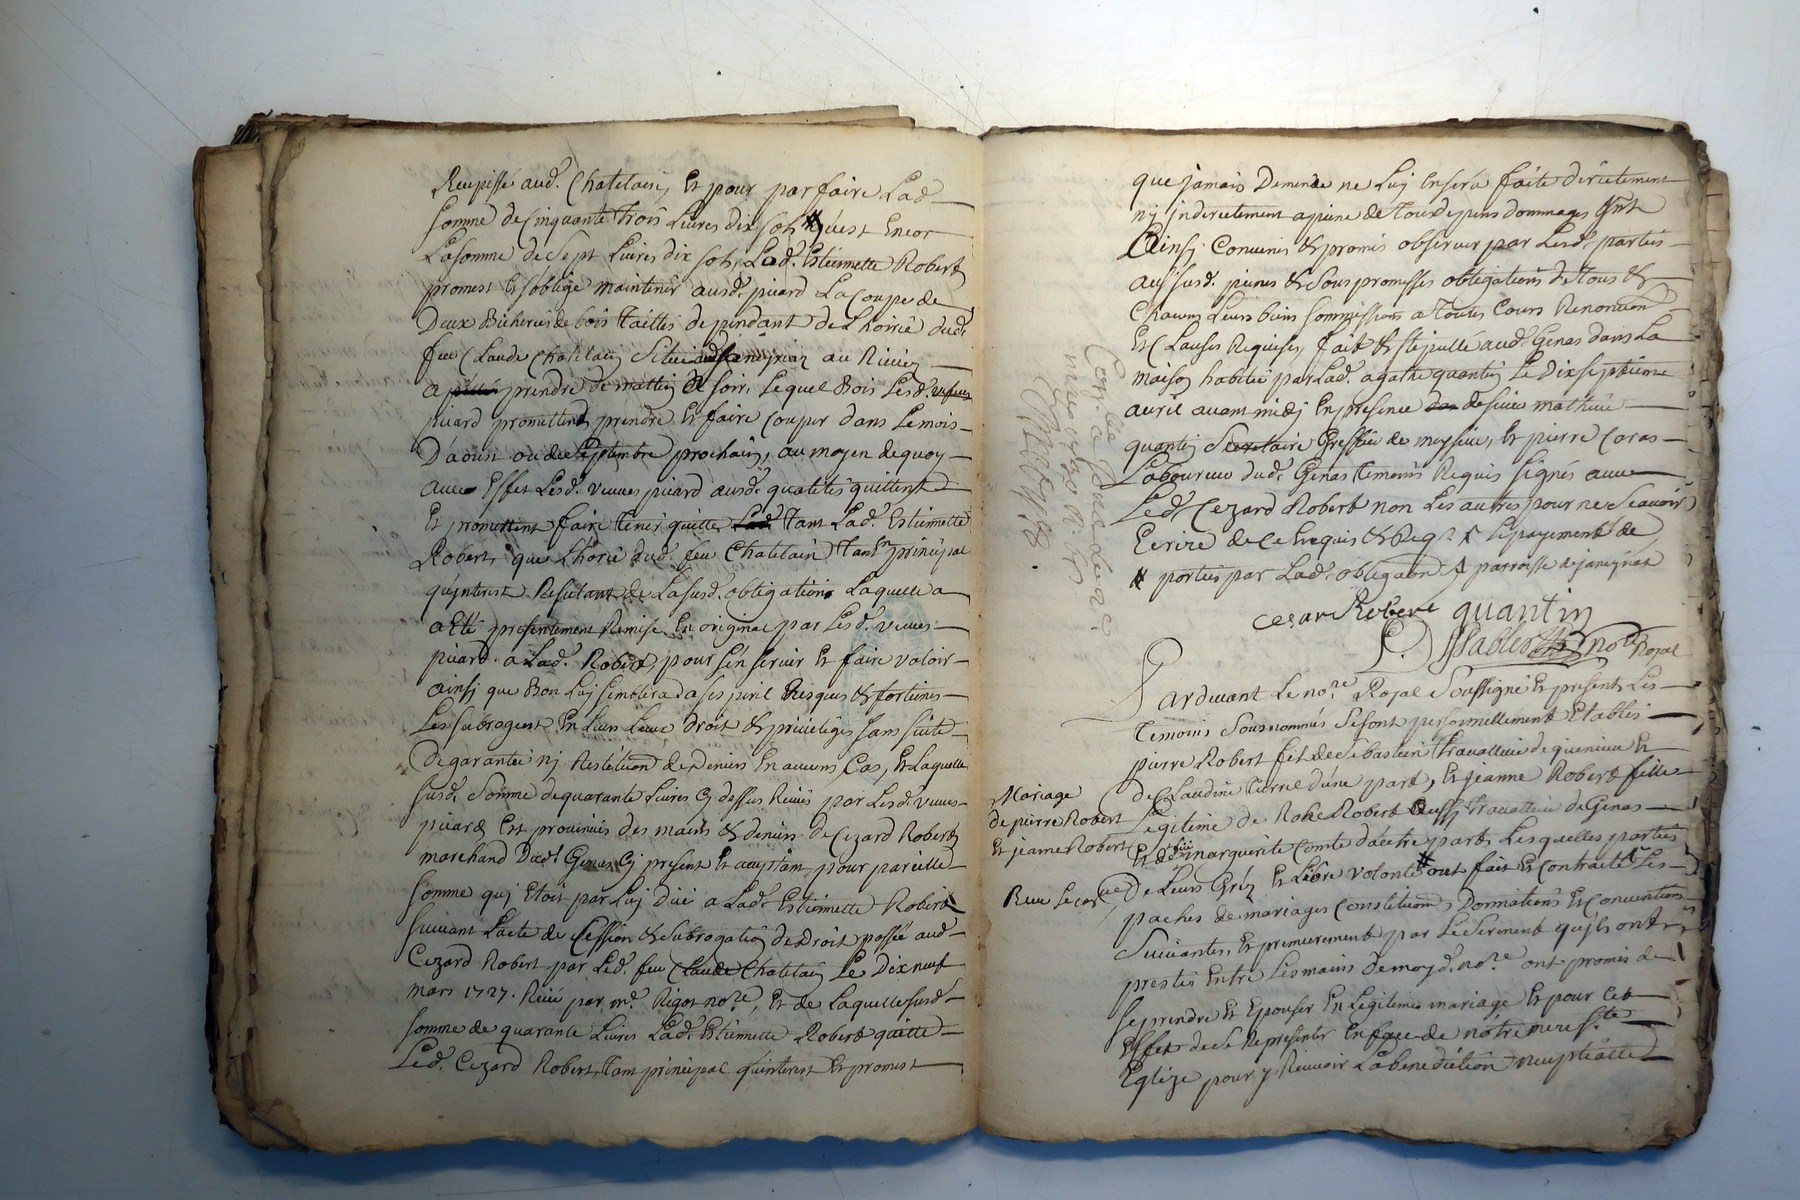 Recepisse aud. Chatelain, Et pour parfaire Lad.
somme de Cinquante trois Livres dix sols # qu'est Encor
La somme de Sept Livres dix sols, Lad. Estiennette Robert
promest Et s'oblige maintenir ausd. picard La Coupe de
Deux Bicherées de bois Taillis dependant de L'hoirie dud.
feu Claude Chatelain Situé au
a prendre de mattin Et soir, Lequel Bois Lesd. veuves
picard promettent prendre Et faire Couper dans Le mois
D'aoust ou de Septembre prochain, au moyen de quoy
avec Effet Lesd. veuves picard ausd. qualités quittent
Et promettent faire tenir quitte Tant Lad. Estiennette
Robert, que L'hoirie dud. feu Chatelain Tant principal
qu'interest Resultant de La susd. obligation Laquelle a
a Eté presentement Remise En original par Lesd. veuves
picard a Lad. Robert, pour s'en servir Et faire valoir
ainsi que Bon Luy semblera a ses peril Risques & fortunes
Les subrogent En Leurs Lieux droit & privileges sans suitte
De garantie ny Restitution de Deniers En aucuns Cas, Et Laquelle
susd. Somme de quarante Livres cy dessus Reçue par Lesd. veuves
picard Est provenue des mains & deniers de Cezard Robert
marchand Dud. Genas cy present Et acceptant pour pareille
somme qui Etoit par Luy düe a Lad. Estiennette Robert
suivant L'acte de Cession & subrogation de Droit passée aud.
Cezard Robert par Led. feu Claude Chatelain Le Dix neuf
mars 1727. Reçu par me. Rigot nore, Et de Laquelle susd.
somme de quarante Livres Lad. Estiennette Robert quitte
Led. Cezard Robert, Tant principal qu'interest Et promest
que jamais Demande ne Luy En sera faite directement
ny indirectement a peine de tous depens dommages
Ainsy Convenu & promis observer par Lesd. parties
aux susd. peines & sous promesses obligations de tous &
Chacuns Leurs biens sommissions a Toutes Cours Renonciaon
Et Clauses Requises, fait & stipullé aud. Genas dans La
maison habitée par Lad. agathe quantin Le Dix septieme
avril avant midy En presence de sieur mathieu
quantin Secretaire Greffier de meyssieu, Et pierre Coras
Laboureur dud. Genas temoins Requis signés avec
Led. Cezard Robert non Les autres pour ne Scavoir
Ecrire de Ce Enquis & Req. Le payement de
# portées par Lad. obligaon parroisse de janeyriat
cesar Robert quantin
nore Royal
Con.lé
Pardevant Le nore Royal Soussigné Et presents Les
temoins Sousnommés Se sont personnellement Etablis
pierre Robert fils de Sebastien travailleur de Et
de Claudine d'une part, Et jeanne Robert fille
Mariage
de pierre Robert
Et jeanne Robert
Legitime de Robert aussy travailleur de Genas
Et de marguerite Comte d'autre part Lesquelles parties
de Leurs Gréz Et Libre volonté # ont fait Et Contracté Les
paches de mariages Constitutions, Donnations Et Conventions
Suivantes, Et premierement par Le Serment qu'ils ont
prestés Entre Les mains de moyd. nore ont promis de
se prendre Et Epouser En Legitime mariage Et pour Cet
Effet de se Representer En face de nôtre mere Ste
Eglize pour y Recevoir La benediction nuptialle